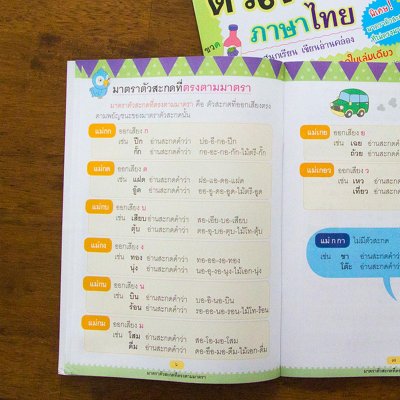 ภาษาไทย
มาตราตัวสะกดที่ตรงตามมาตรา
มาตราตัวสะกดที่ตรงตามมาตรา คือ ตัวสะกดที่ออกเสียงตรง
ตามพยัญชนะของมาตราตัวสะกดนั้น
แม่กก ออกเสียง ก
เช่น ปีก อ่านสะกดคำว่า ปอ-อี-กอ-ปีก
กั๊ก อ่านสะกดคำว่า
แม่กด ออกเสียง ด
เช่น แฝด อ่านสะกดคำว่า ฝอ-แอ-ดอ-แฝด
อู๊ด อ่านสะกดคำว่า ออ-อู-ดอ-อูด-ไม้ตรี-อู๊ด
แม่กบ ออกเสียง บ
เช่น เสียบ อ่านสะกดคำว่า สอ-เอีย-บอ-เสียบ
ตุ้บ อ่านสะกดคำว่า ตอ-อุ-บอ-ตุบ-ไม้โท-ตุ้บ
แม่กง ออกเสียง ง
เช่น ทอง อ่านสะกดคำว่า ทอ-ออ-งอ-ทอง
นุ่ง อ่านสะกดคำว่า นอ-อุ-งอ-นุง-ไม้เอก-นุ่ง
แม่กน ออกเสียง น
เช่น บิน อ่านสะกดคำว่า บอ-อิ-นอ-บิน
ร้อน อ่านสะกดคำว่า รอ-ออ-นอ-รอน-ไม้โท-ร้อน
แม่กม ออกเสียง ม
เช่น โสม อ่านสะกดคำว่า สอ-โอ-มอ-โสม
ดื่ม อ่านสะกดคำว่า ดอ-อือ-มอ-ดืม-ไม้เอก-ดื่ม
มาตราตัวสะกดที่ตรงตามมาตรา
แม่เกย ออกเสียง ย
เช่น เฉย อ่านสะกดคำว่า
ถ้วย อ่านสะกดคำว่า
แม่เกอว ออกเสียง ว
เช่น เหว อ่านสะกดคำ
เที่ยว อ่านสะกดคำ
แม่ ก กา ไม่มีตัวสะกด
เช่น ขา อ่านสะกดคำ
โต๊ะ อ่านสะกดคำ
มาตราตัวสะกดที่ตรงตามมาตรา